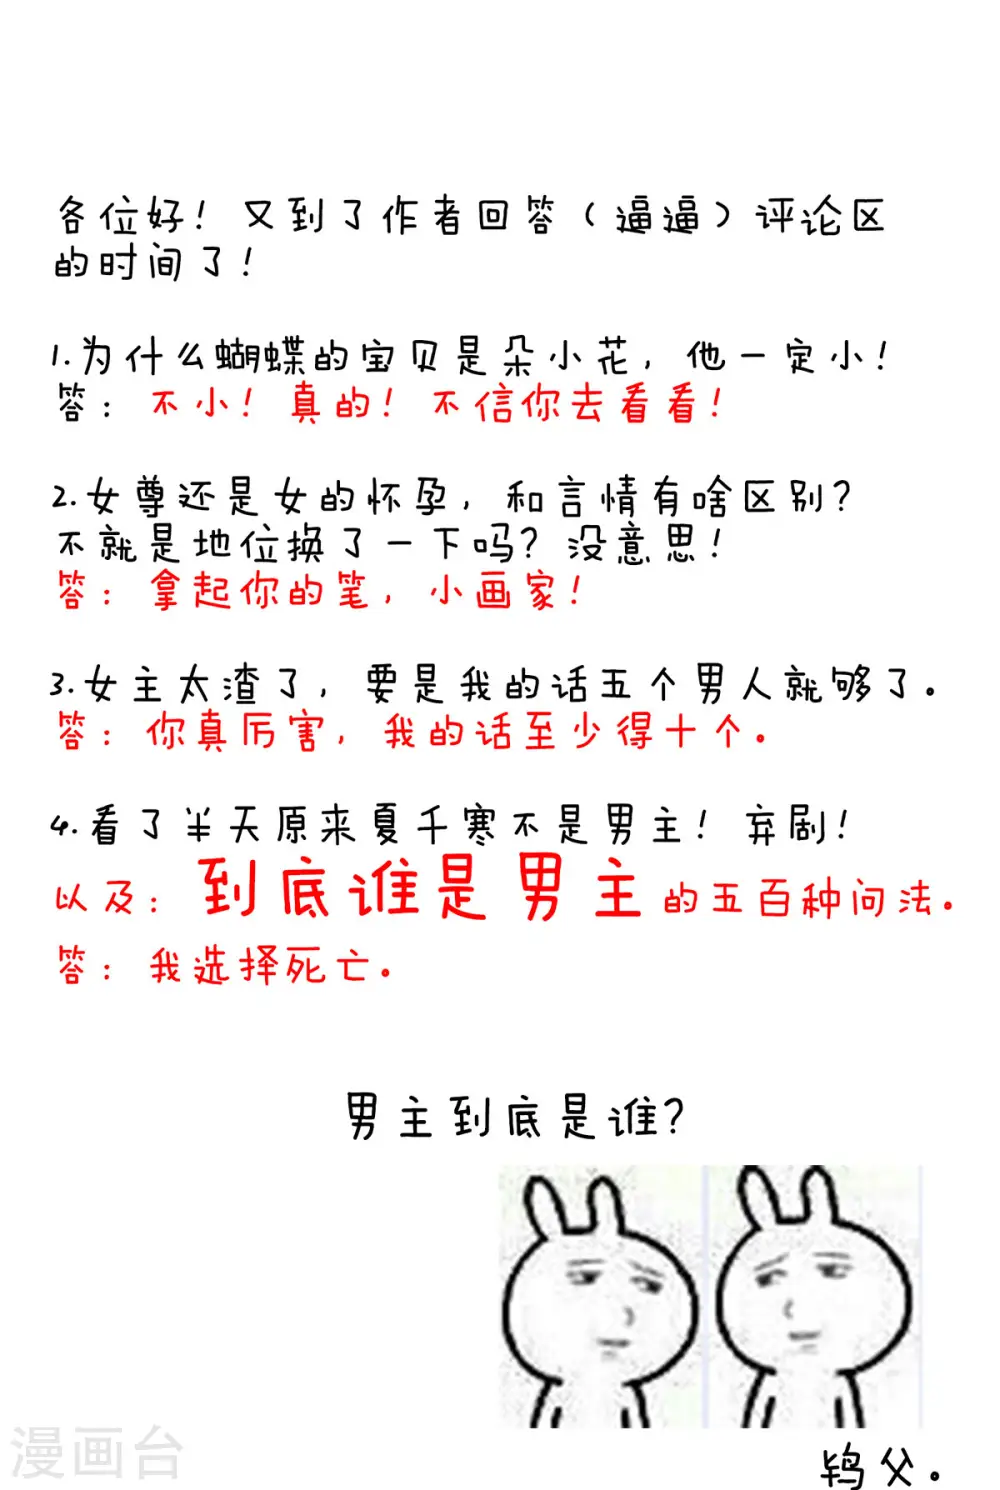 各位好！又到了作者回答（逼逼）评论区
的时间了！
1.为什么蝴蝶的宝贝是朵小花，他一定小！
答：不小！真的！不信你去看看！
2.女尊还是女的怀孕，和言情有啥区别？
不就是地位换了一下吗？没意思！
答：拿起你的笔，小画家！
3.女主太渣了，要是我的话五个男人就够了。
答：你真厉害，我的话至少得十个。
4.看了半天原来夏千寒不是男主！弃剧！
以及：到底谁是男主的五百种问法。
答：我选择死亡。
男主到底是谁？
鸨父。
漫画台